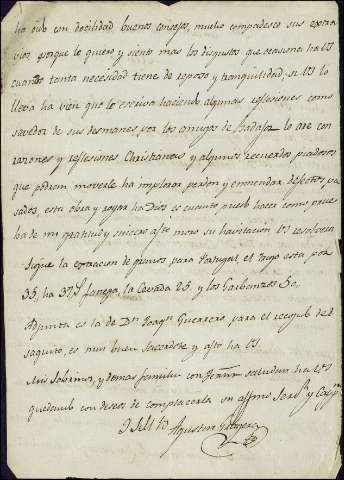 ha oido con docilidad buenos consejos, mucho compadesco sus extra
vios porque lo quiero y siento mas los disgustos que ocasiona ha Us
cuando tanta necesidad tiene de reposo y tranquilidad, si Us lo
lleva ha vien que lo escriva haciendo algunas reflesiones como
savedor de sus desmanes por los amigos de Badajoz lo are con
razones y reflesiones Christianas y algunos recuerdos piadosos
que podrian moverle ha implorar perdon y enmendar defectos pa
sados, esta obra y rogar ha Dios es cuanto puedo hacer como prue
ba de mi gratitud y sincero afto
Sigue la extracion de granos para Portugal el trigo esta por
35, ha 37 fanega, la Cevada 25 y los Garbanzos 50.
Adjunta es la de Dn Joaqn Guerrero para el recojido de
saquito, es mui buen Sacerdote y afto ha Us
Mis Sobrinos, y demas familia con saludan ha Us
quedando con deseos de complacerla su affmo Servr y Capn
Q S M B
Agustin